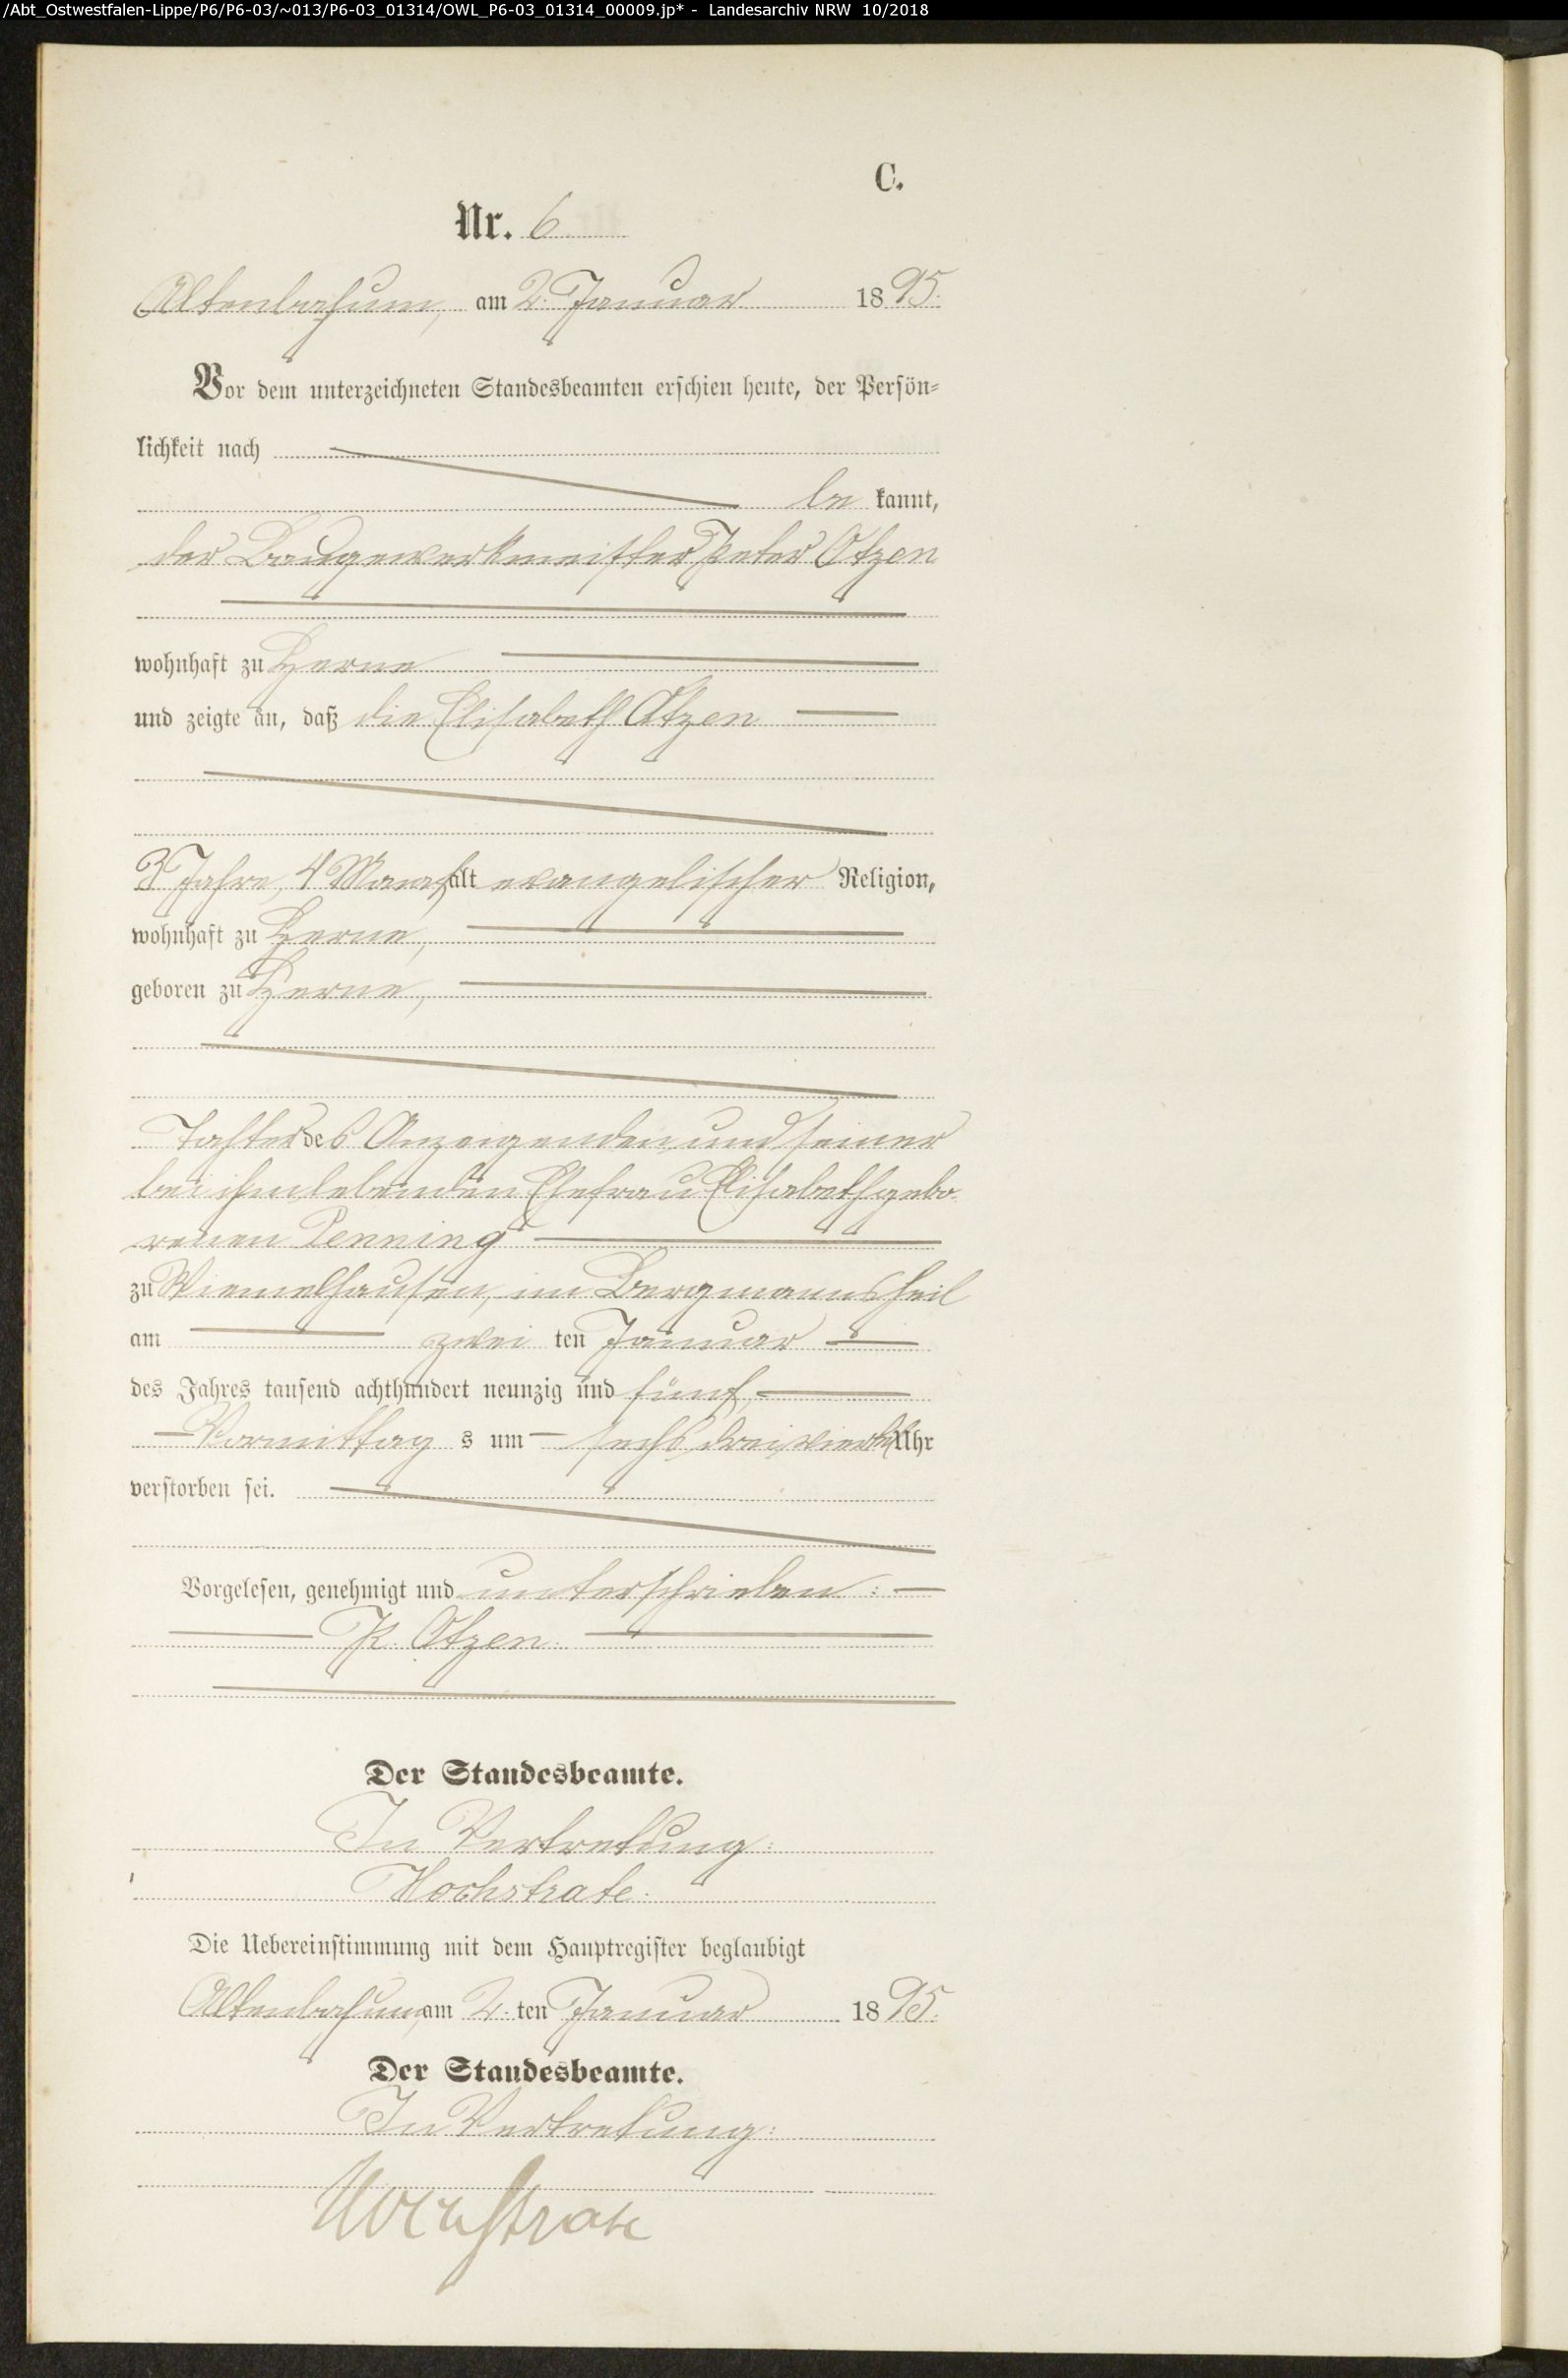 /Abt_Ostwestfalen-Lippe/P6/P6-03/~013/P6-03_01314/OWL_P6-03_01314_00009.jp* - Landesarchiv NRW 10/2018
C.
Nr. 6
Altenbochum, am 2. Januar 1895.
Vor dem unterzeichneten Standesbeamten erschien heute, der Persön=
lichkeit nach
be kannt,
der Baugewerkmeister Peter Otzen
wohnhaft zu Herne
und zeigte an, daß die Elisabeth Otzen
3 Jahre, 4 Monat alt evangelischer Religion,
wohnhaft zu Herne,
geboren zu Herne,
Tochter des Anzeigenden und seiner
bei ihm lebenden Ehefrau Elisabeth gebo-
renen Penning
zu Wiemelhausen, im Bergmannsheil
am zwei ten Januar
des Jahres tausend achthundert neunzig und fünf,
Vormittag s um sechs dreiviertel Uhr
verstorben sei.
Vorgelesen, genehmigt und unterschrieben:
P. Otzen.
Der Standesbeamte.
In Vertretung:
Hochstrate.
Die Uebereinstimmung mit dem Hauptregister beglaubigt
Altenbochum, am 2. ten Januar 1895.
Der Standesbeamte.
In Vertretung:
Hochstrate